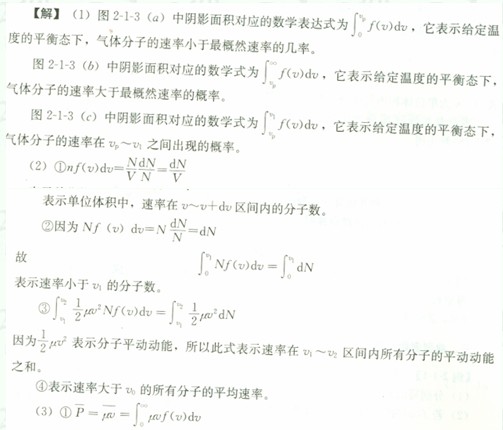 【解】(1) 图 2-1-3 (a) 中阴影面积对应的数学表达式为∫₀^{v_p} f(v)dv，它表示给定温
度的平衡态下，气体分子的速率小于最概然速率的几率。
图 2-1-3 (b) 中阴影面积对应的数学式为∫_{v_p}^{∞} f(v)dv，它表示给定温度的平衡态下，
气体分子的速率大于最概然速率的概率。
图 2-1-3 (c) 中阴影面积对应的数学式为∫_{v_p}^{v₁} f(v)dv，它表示给定温度的平衡态下，
气体分子的速率在 v_p～v₁ 之间出现的概率。
(2) ①nf(v)dv=N/V dN/N=dN/V
表示单位体积中，速率在 v～v+dv 区间内的分子数。
②因为 Nf (v) dv=N dN/N=dN
故 ∫₀^{v₁} Nf(v)dv=∫₀^{v₁} dN
表示速率小于 v₁ 的分子数。
③∫_{v₁}^{v₂} 1/2 μv²Nf(v)dv=∫_{v₁}^{v₂} 1/2 μv²dN
因为1/2 μv² 表示分子平动动能，所以此式表示速率在 v₁～v₂ 区间内所有分子的平动动能
之和。
④表示速率大于 v₀ 的所有分子的平均速率。
(3) ① P̄ = μv̄ =∫₀^{∞} μvf(v)dv